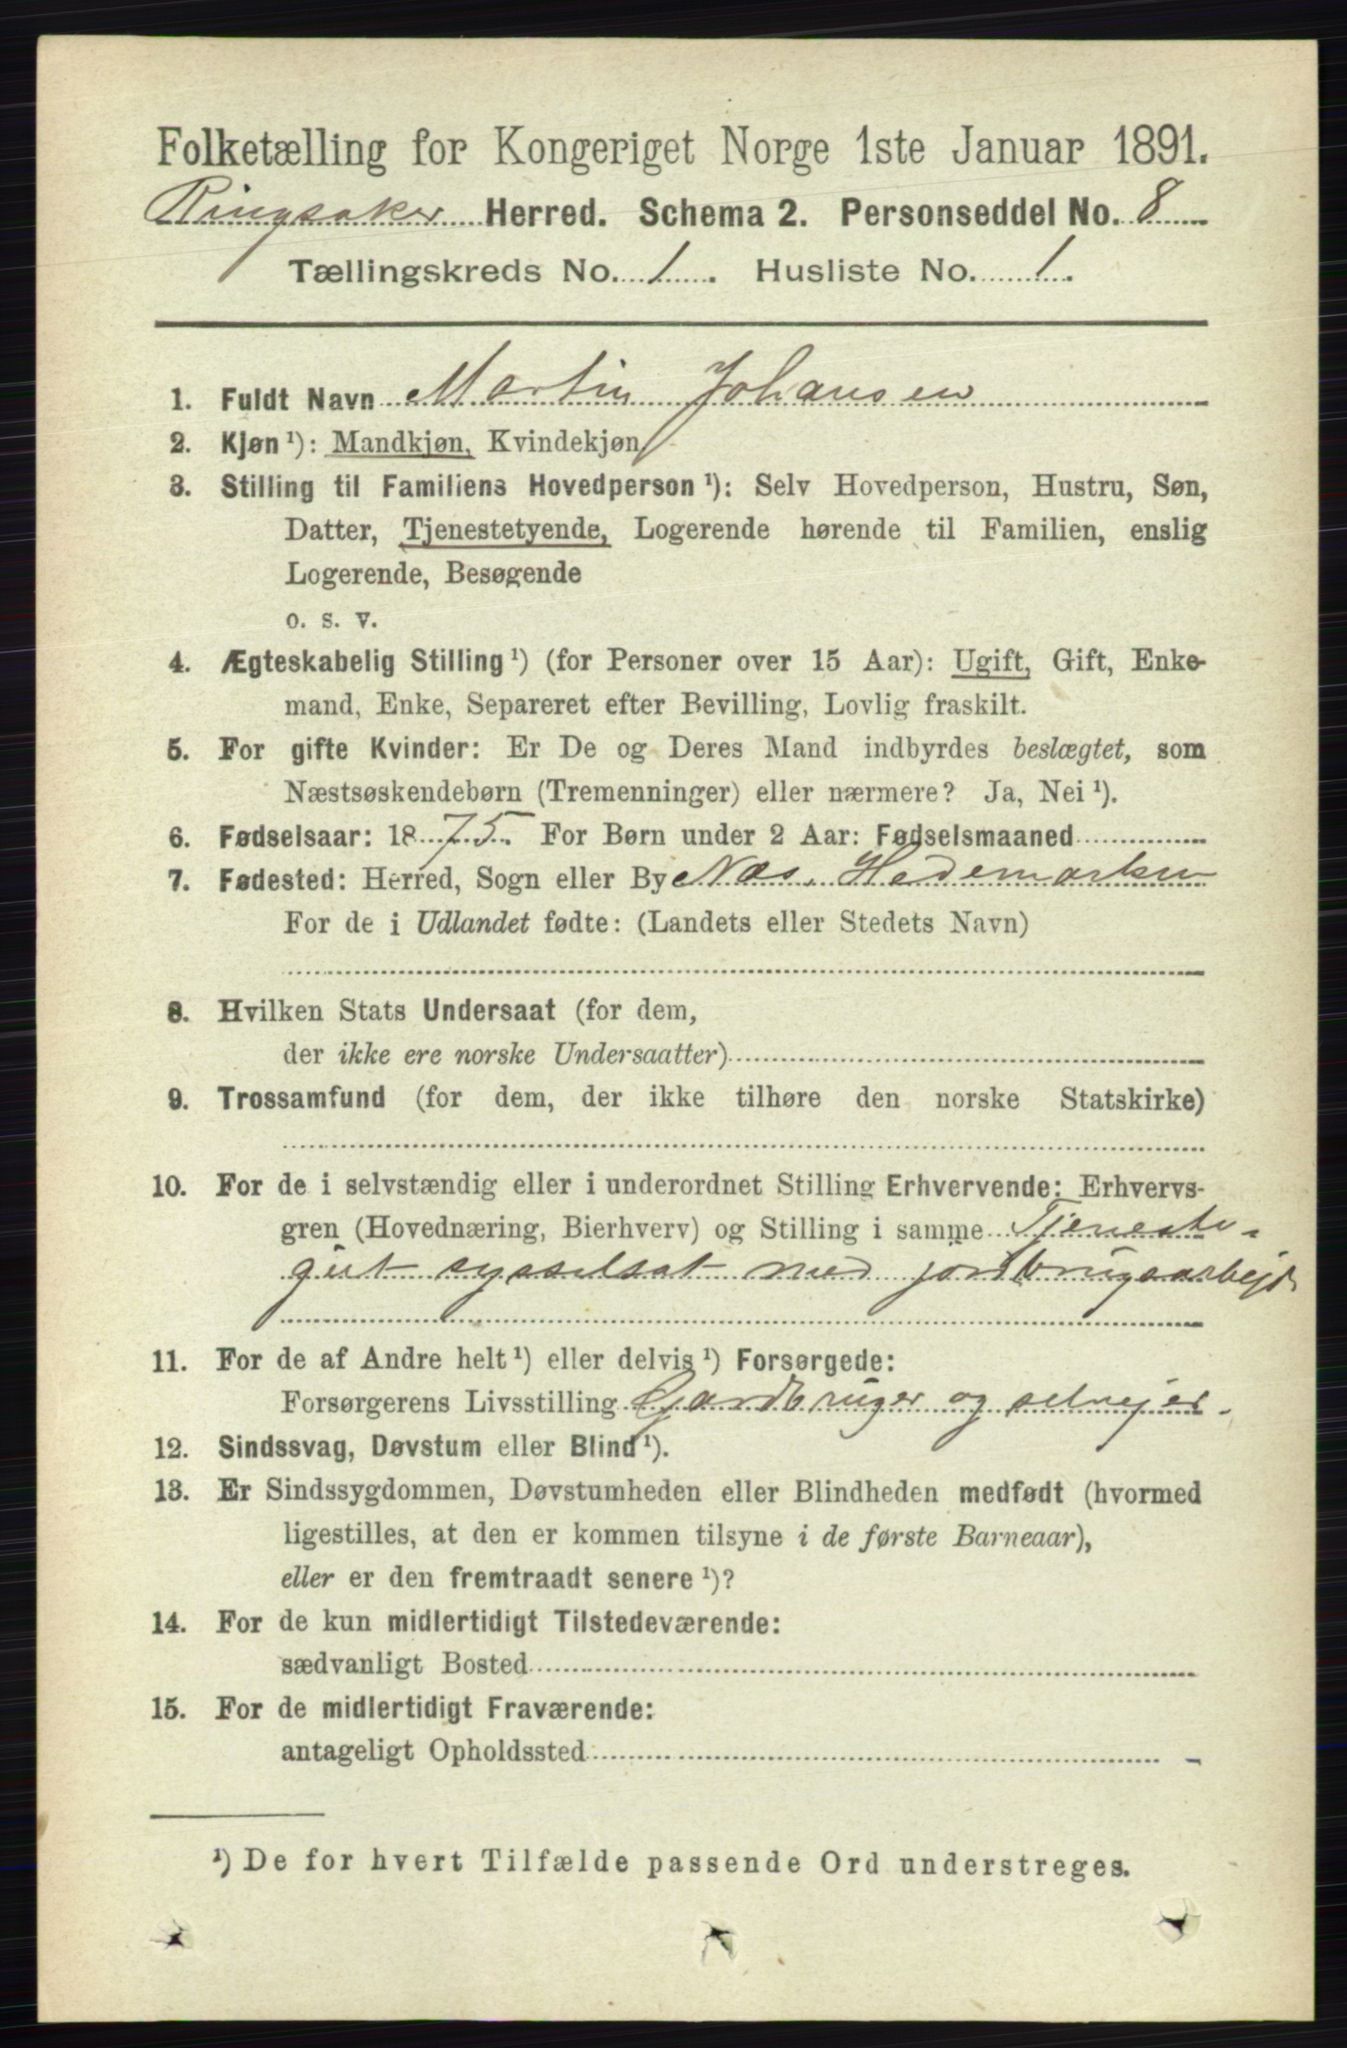 Folketælling for Kongeriget Norge 1ste Januar 1891.
Ringsaker Herred. Schema 2. Personseddel No. 8
Tællingskreds No. 1. Husliste No. 1.
1. Fuldt Navn Martin Johansen
2. Kjøn ¹): Mandkjøn, Kvindekjøn
3. Stilling til Familiens Hovedperson ¹): Selv Hovedperson, Hustru, Søn,
Datter, Tjenestetyende, Logerende hørende til Familien, enslig
Logerende, Besøgende
o. s. v.
4. Ægteskabelig Stilling ¹) (for Personer over 15 Aar): Ugift, Gift, Enke-
mand, Enke, Separeret efter Bevilling, Lovlig fraskilt.
5. For gifte Kvinder: Er De og Deres Mand indbyrdes beslægtet, som
Næstsøskendebørn (Tremenninger) eller nærmere? Ja, Nei ¹).
6. Fødselsaar: 1875. For Børn under 2 Aar: Fødselsmaaned
7. Fødested: Herred, Sogn eller By Næs. Hedemarken
For de i Udlandet fødte: (Landets eller Stedets Navn)
8. Hvilken Stats Undersaat (for dem,
der ikke ere norske Undersaatter)
9. Trossamfund (for dem, der ikke tilhøre den norske Statskirke)
10. For de i selvstændig eller i underordnet Stilling Erhvervende: Erhvervs-
gren (Hovednæring, Bierhverv) og Stilling i samme Tjeneste-
gut sysselsat med jordbrugsarbejde
11. For de af Andre helt ¹) eller delvis ¹) Forsørgede:
Forsørgerens Livsstilling Gardbruger og selvejer.
12. Sindssvag, Døvstum eller Blind ¹).
13. Er Sindssygdommen, Døvstumheden eller Blindheden medfødt (hvormed
ligestilles, at den er kommen tilsyne i de første Barneaar),
eller er den fremtraadt senere ¹)?
14. For de kun midlertidigt Tilstedeværende:
sædvanligt Bosted
15. For de midlertidigt Fraværende:
antageligt Opholdssted
¹) De for hvert Tilfælde passende Ord understreges.